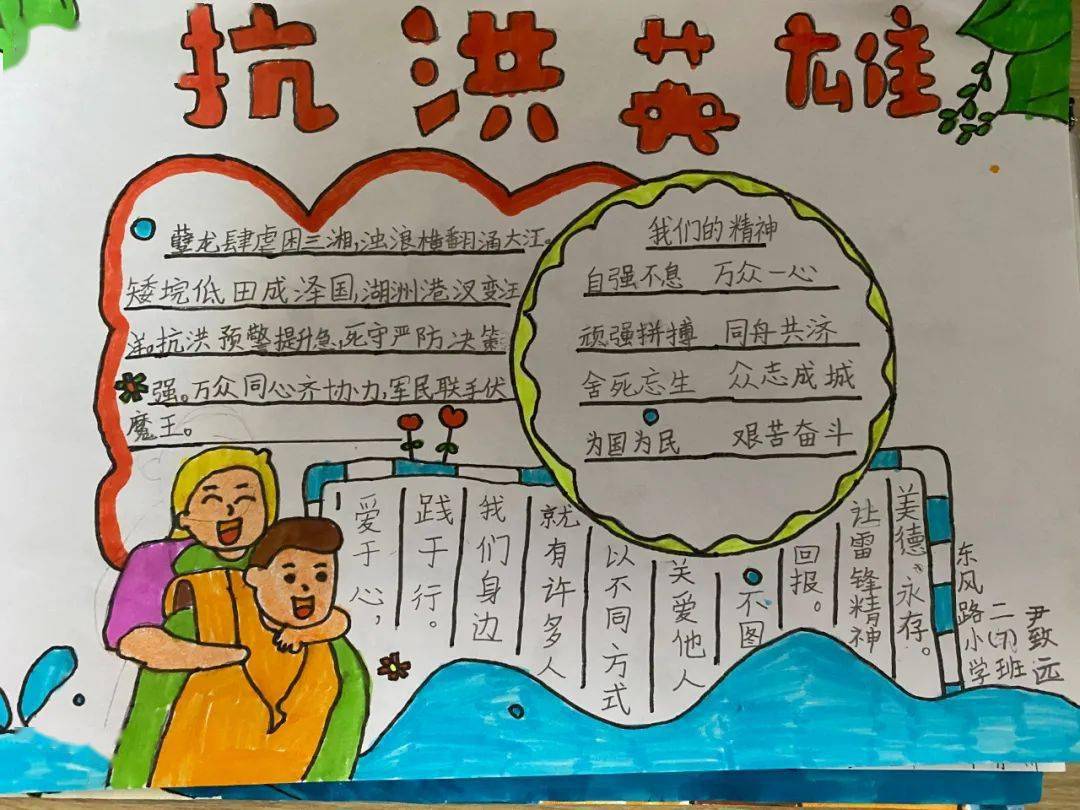 抗洪英雄
孽龙肆虐困三湘,浊浪横翻涌大江。
矮垸低田成泽国,湖洲港汊变汪
洋。抗洪预警提升急,死守严防决策
强。万众同心齐协力,军民联手伏
魔王。
我们的精神
自强不息 万众一心
顽强拼搏 同舟共济
舍死忘生 众志成城
为国为民 艰苦奋斗
爱于心,
践于行。
我们身边
就有许多人
以不同方式
关爱他人
不图
回报。
让雷锋精神
美德。永存。
东风路小学
二(7)班
尹致远